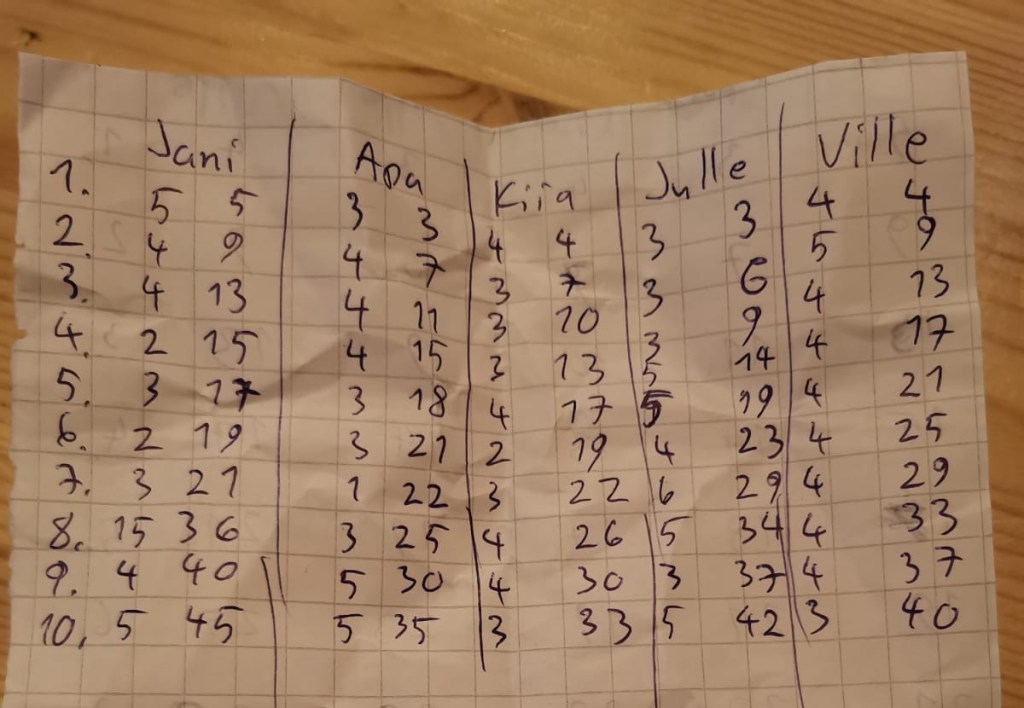 Jani Apa Kiia Julle Ville
1. 5 5 3 3 4 4 3 3 4 4
2. 4 9 4 7 3 7 3 6 5 9
3. 4 13 4 11 3 10 3 9 4 13
4. 2 15 4 15 3 13 5 14 4 17
5. 3 17 3 18 4 17 5 19 4 21
6. 2 19 3 21 2 19 4 23 4 25
7. 3 21 1 22 3 22 6 29 4 29
8. 15 36 3 25 4 26 5 34 4 33
9. 4 40 5 30 4 30 3 37 4 37
10. 5 45 5 35 3 33 5 42 3 40